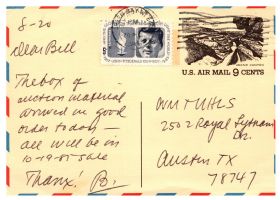 8-20
Dear Bill
The box of
auction material
arrived in good
order today –
all will be in
10-19-85 sale
Thanx! B.
U.S. AIR MAIL 9 CENTS
WM TUHLS
2502 Royal Lytham
Dr.
Austin TX
78747